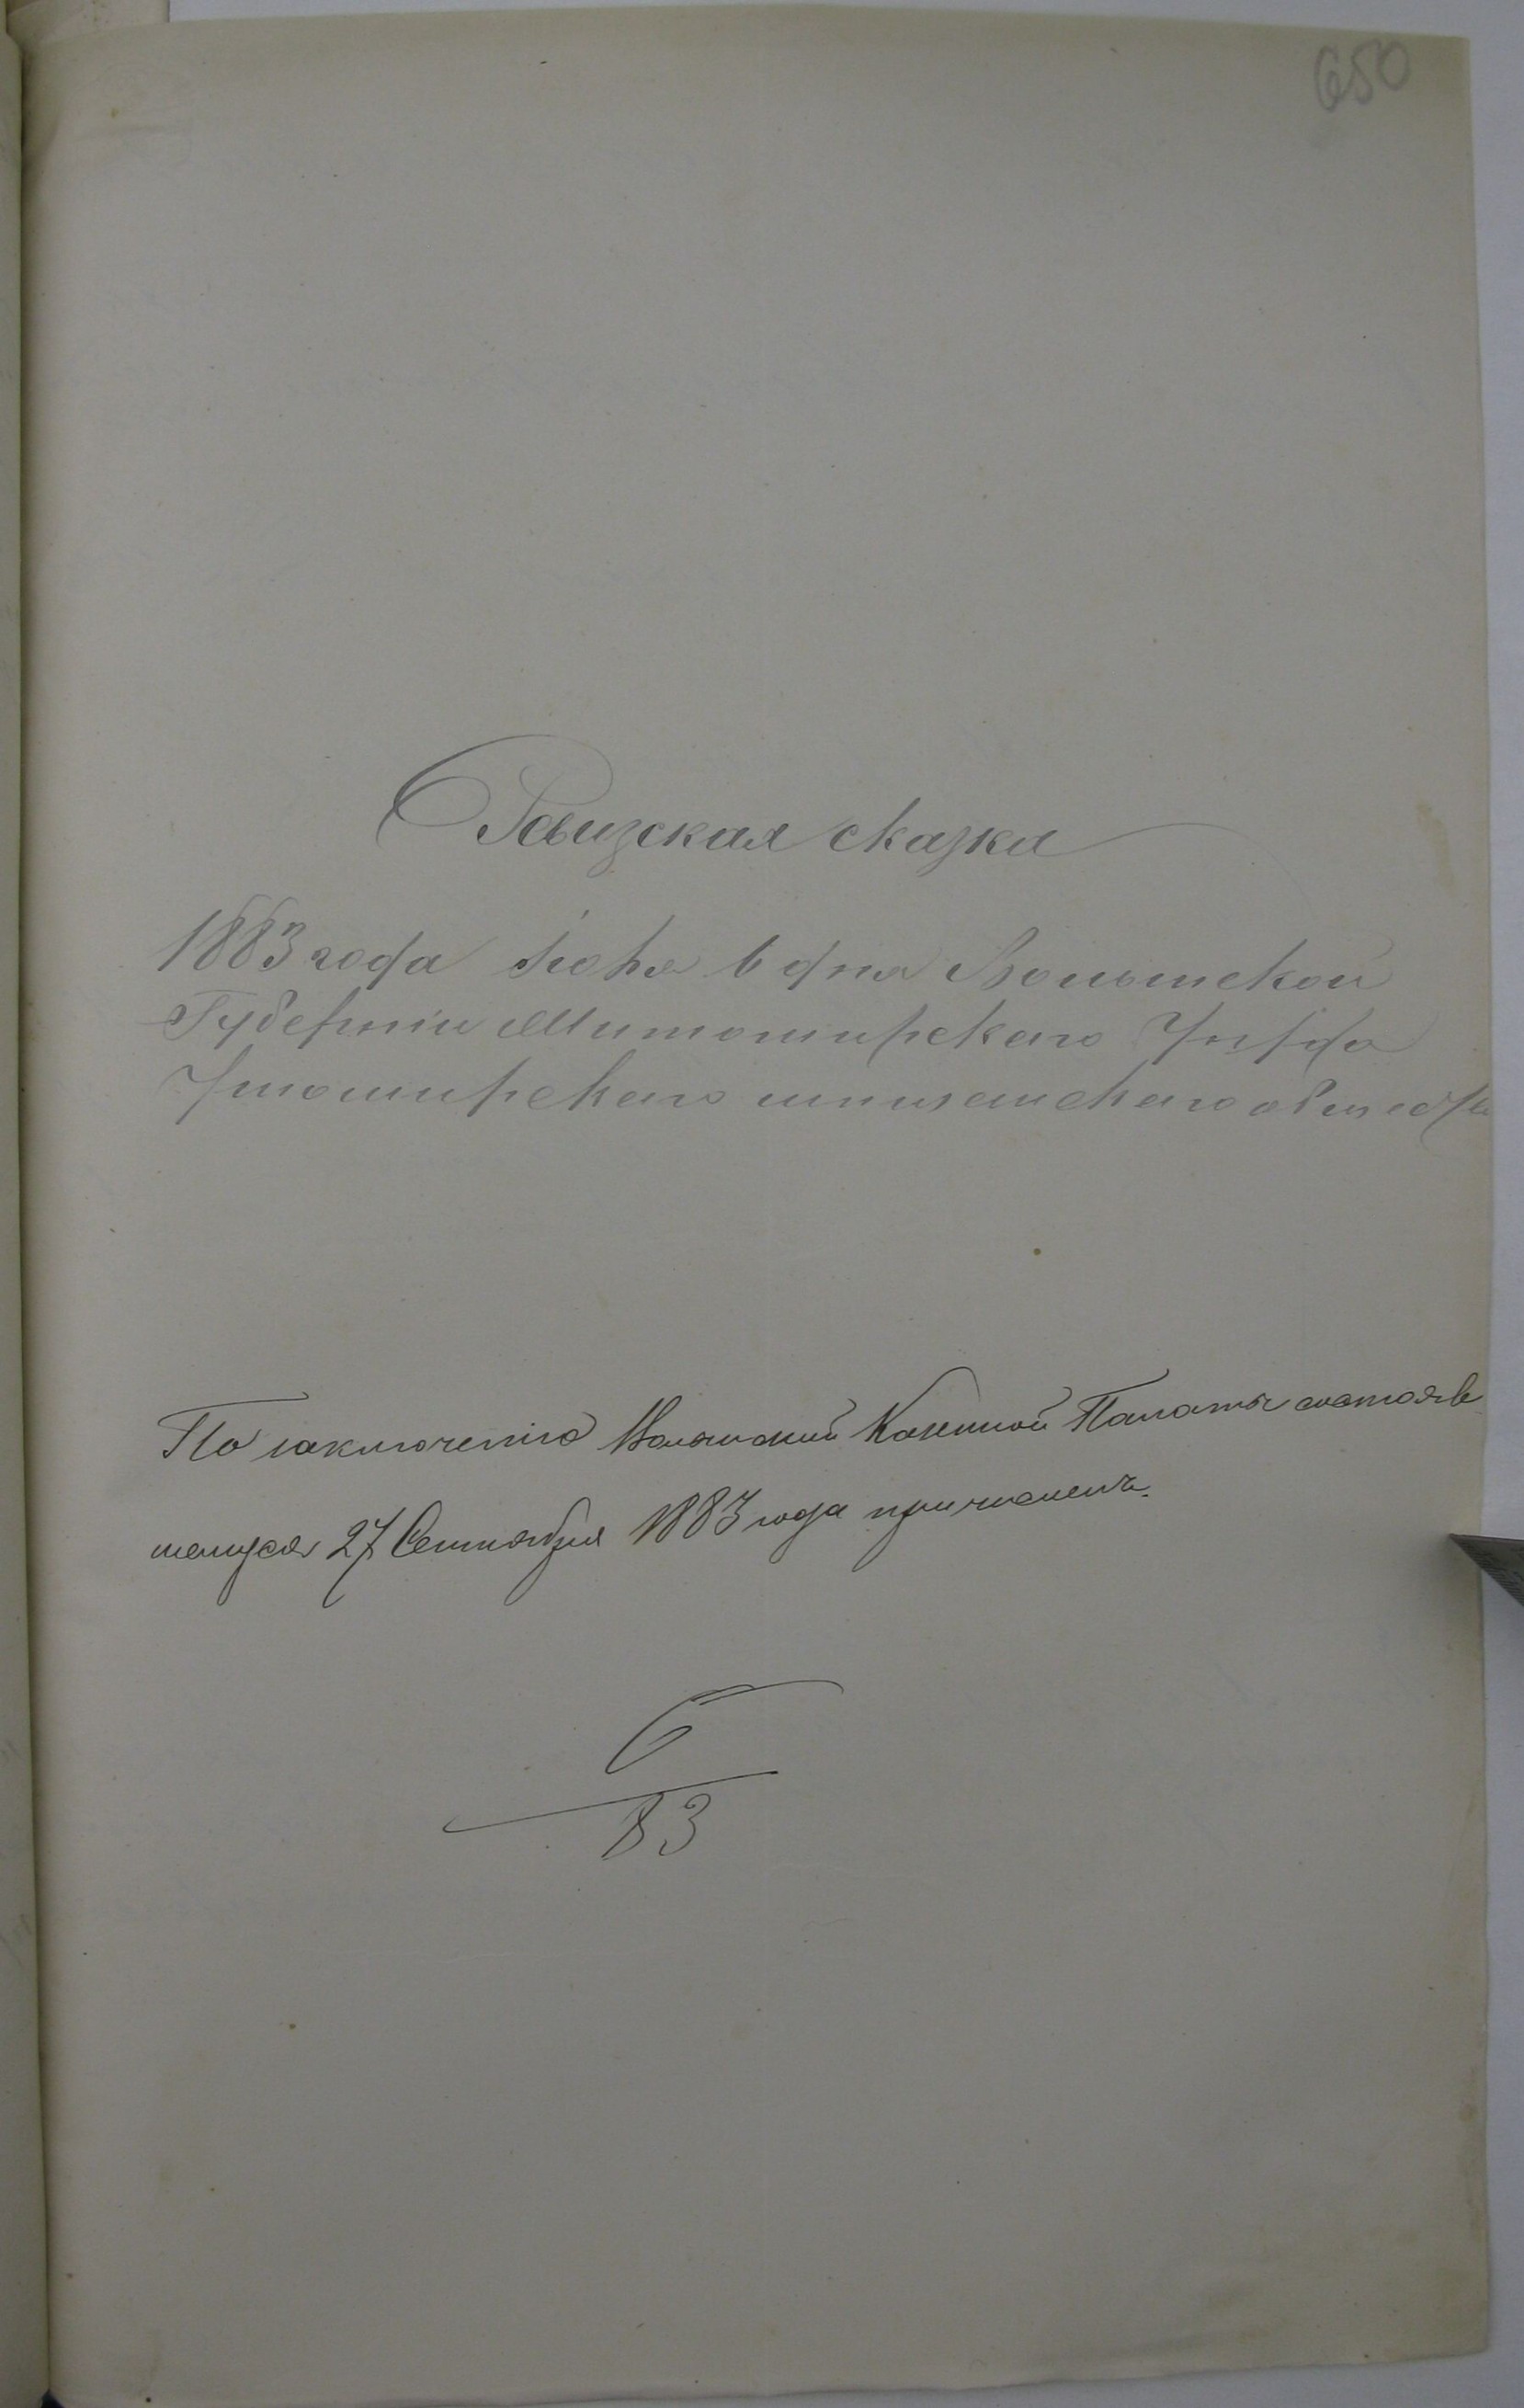 650
Ревизская сказка
1883 года Июня 6 дня Волынской
Губернии Житомирскаго Уѣзда
Ушомирскаго мѣщанскаго общества
По заключенію Волынской Казенной Палаты состояв
шемуся 27 Сентября 1883 года причисленъ.
6
83